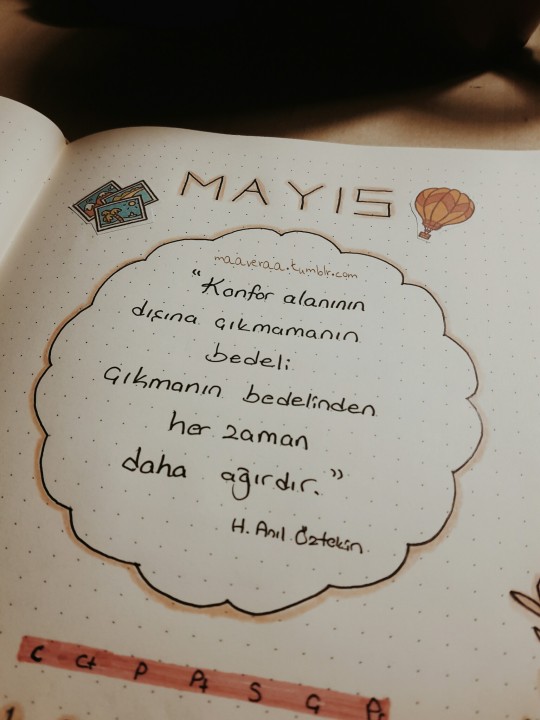 MAYIS
maaveraa.tumblr.com
"Konfor alanının
dışına çıkmamanın
bedeli
çıkmanın bedelinden
her zaman
daha ağırdır."
H. Anıl Öztekin
C Ct P Pt S G Pr